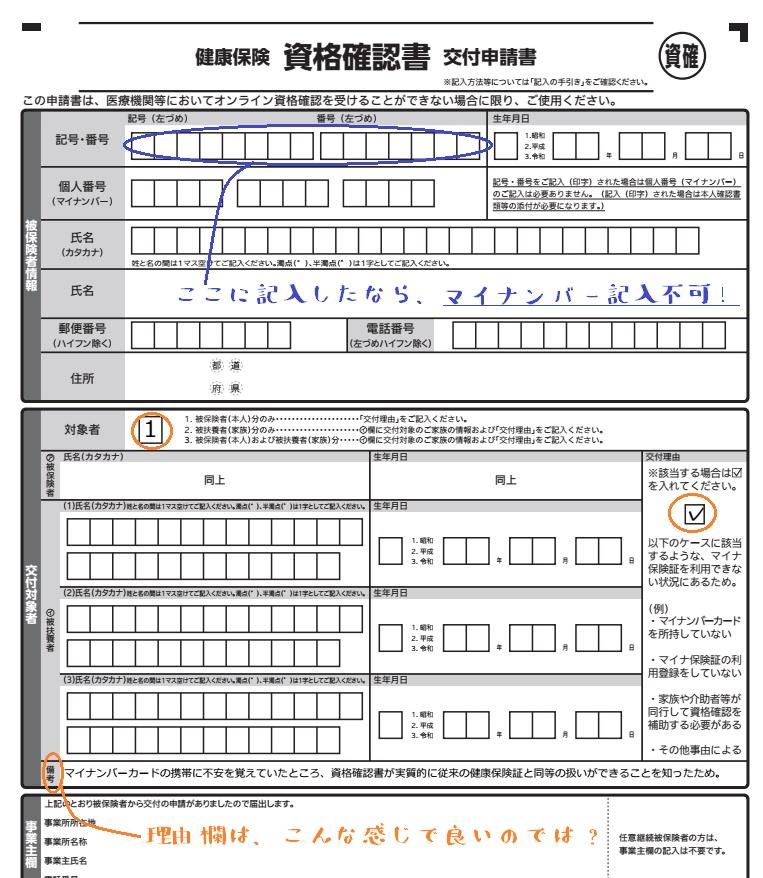 健康保険 資格確認書 交付申請書
資確
※記入方法等については「記入の手引き」をご確認ください。
この申請書は、医療機関等においてオンライン資格確認を受けることができない場合に限り、ご使用ください。
被保険者情報
記号・番号
記号（左づめ）
番号（左づめ）
生年月日
1.昭和
2.平成
3.令和
年 月 日
個人番号
（マイナンバー）
記号・番号をご記入（印字）された場合は個人番号（マイナンバー）
のご記入は必要ありません。（記入（印字）された場合は本人確認書
類等の添付が必要になります。）
氏名
（カタカナ）
姓と名の間は1マス空けてご記入ください。濁点（゛）、半濁点（゜）は1字としてご記入ください。
氏名
ここに記入したなら、マイナンバー記入不可！
郵便番号
（ハイフン除く）
電話番号
（左づめハイフン除く）
住所
都 道
府 県
交付対象者
対象者
1
1. 被保険者（本人）分のみ・・・・・・・・・・・・・・・・「交付理由」をご記入ください。
2. 被扶養者（家族）分のみ・・・・・・・・・・・・・・・・㋑欄に交付対象のご家族の情報および「交付理由」をご記入ください。
3. 被保険者（本人）および被扶養者（家族）分・・・・・㋑欄に交付対象のご家族の情報および「交付理由」をご記入ください。
㋐被保険者
氏名（カタカナ）
同上
生年月日
同上
交付理由
※該当する場合は☑
を入れてください。
☑
以下のケースに該当
するような、マイナ
保険証を利用できな
い状況にあるため。
（例）
・マイナンバーカード
を所持していない
・マイナ保険証の利
用登録をしていない
・家族や介助者等が
同行して資格確認を
補助する必要がある
・その他事由による
㋑被扶養者
(1)氏名（カタカナ）姓と名の間は1マス空けてご記入ください。濁点（゛）、半濁点（゜）は1字としてご記入ください。
生年月日
1. 昭和
2. 平成
3. 令和
年 月 日
(2)氏名（カタカナ）姓と名の間は1マス空けてご記入ください。濁点（゛）、半濁点（゜）は1字としてご記入ください。
生年月日
1. 昭和
2. 平成
3. 令和
年 月 日
(3)氏名（カタカナ）姓と名の間は1マス空けてご記入ください。濁点（゛）、半濁点（゜）は1字としてご記入ください。
生年月日
1. 昭和
2. 平成
3. 令和
年 月 日
備考
マイナンバーカードの携帯に不安を覚えていたところ、資格確認書が実質的に従来の健康保険証と同等の扱いができることを知ったため。
事業主欄
上記のとおり被保険者から交付の申請がありましたので届出します。
事業所所在地
事業所名称
事業主氏名
理由欄は、こんな感じで良いのでは？
任意継続被保険者の方は、
事業主欄の記入は不要です。